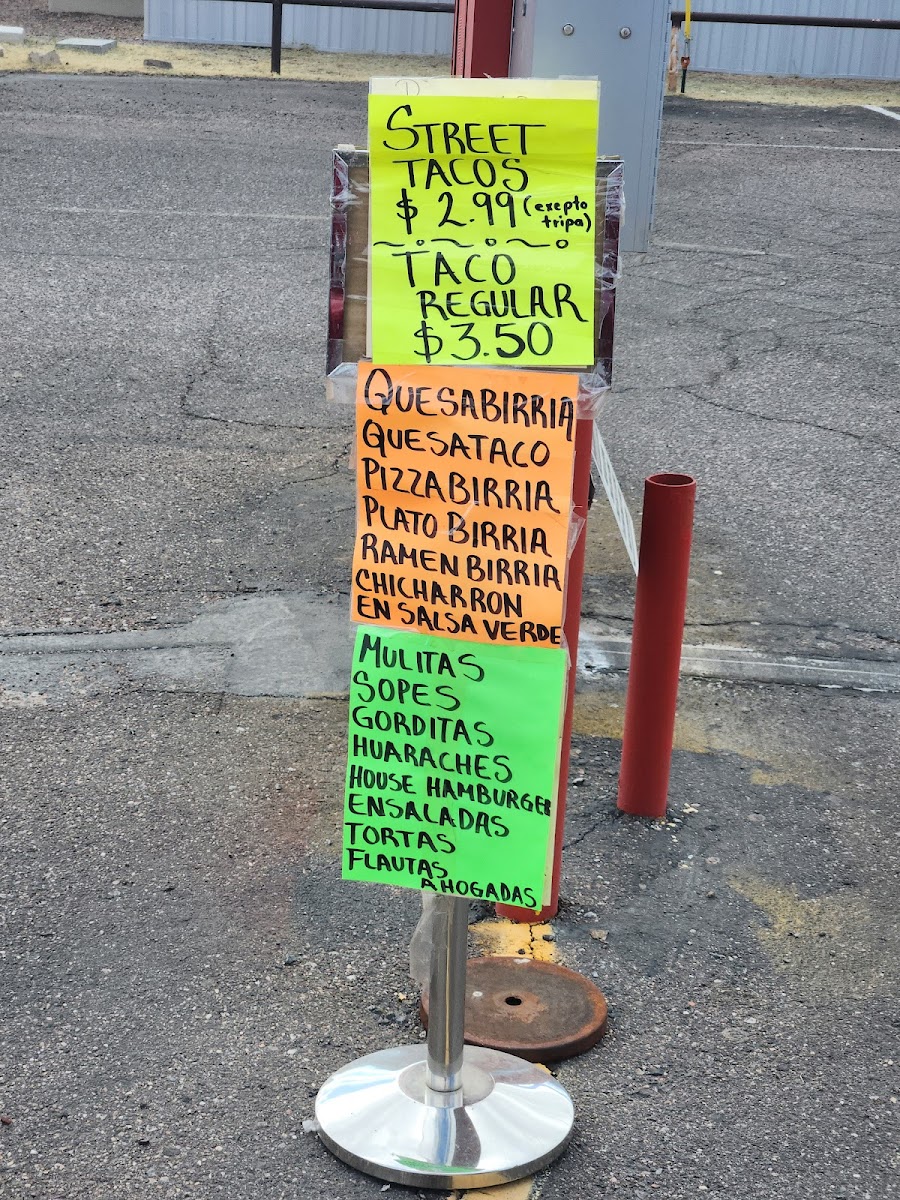 STREET
TACOS
$ 2.99 (exepto
tripa)
TACO
REGULAR
$3.50
QUESABIRRIA
QUESATACO
PIZZABIRRIA
PLATO BIRRIA
RAMEN BIRRIA
CHICHARRON
EN SALSA VERDE
MULITAS
SOPES
GORDITAS
HUARACHES
HOUSE HAMBURGER
ENSALADAS
TORTAS
FLAUTAS
AHOGADAS